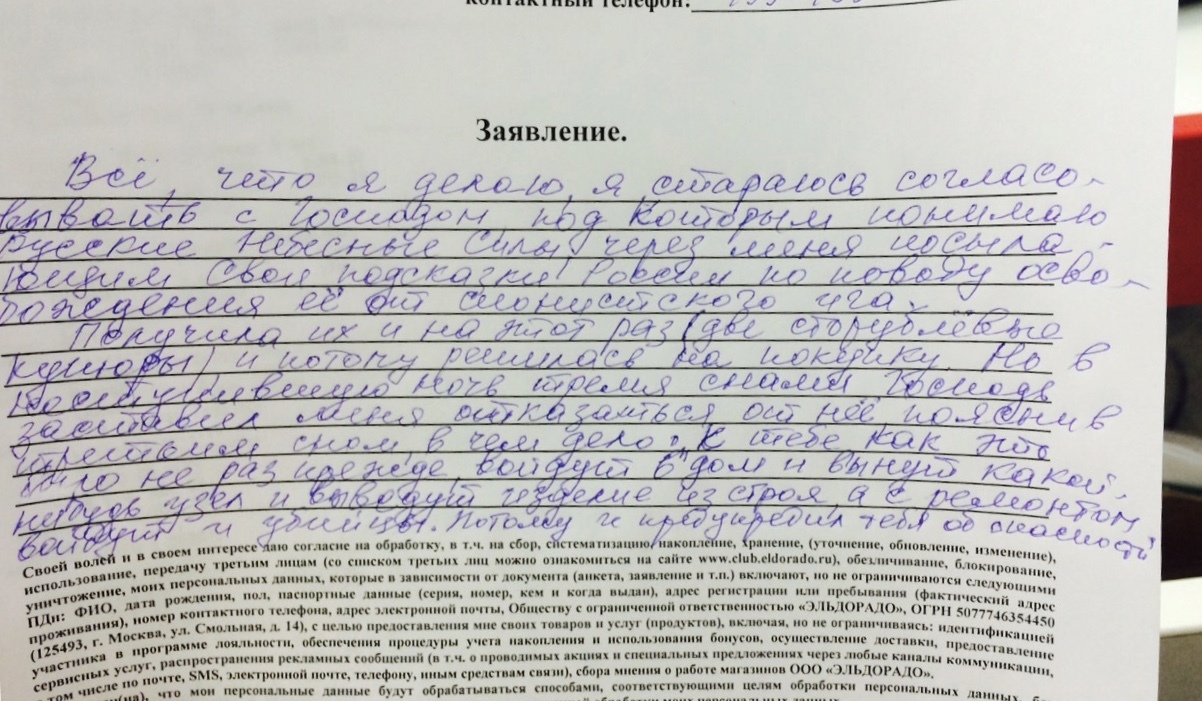 контактный телефон:
Заявление.
Всё, что я делаю, я стараюсь согласо-
вывать с Господом под Которым понимаю
Русские Небесные Силы через меня посыла-
ющим Свои подсказки России по поводу осво-
бождения её от сионистского ига.
Получила их и на этот раз (две сторублёвые
купюры) и потому решилась на покупку. Но в
наступившую ночь тремя снами Господь
заставил меня отказаться от неё пояснив
третьим сном, в чем дело: К тебе как это
было не раз прежде, войдут в дом и вынут какой-
нибудь узел и выведут изделие из строя, а с ремонтом
войдут и убийцы. Потому и предупредил тебя об опасности
Своей волей и в своем интересе даю согласие на обработку, в т.ч. на сбор, систематизацию, накопление, хранение, (уточнение, обновление, изменение),
использование, передачу третьим лицам (со списком третьих лиц можно ознакомиться на сайте www.club.eldorado.ru), обезличивание, блокирование,
уничтожение, моих персональных данных, которые в зависимости от документа (анкета, заявление и т.п.) включают, но не ограничиваются следующими
ПДн: ФИО, дата рождения, пол, паспортные данные (серия, номер, кем и когда выдан), адрес регистрации или пребывания (фактический адрес
проживания), номер контактного телефона, адрес электронной почты, Обществу с ограниченной ответственностью «ЭЛЬДОРАДО», ОГРН 5077746354450
(125493, г. Москва, ул. Смольная, д. 14), с целью предоставления мне своих товаров и услуг (продуктов), включая, но не ограничиваясь: идентификацией
участника в программе лояльности, обеспечения процедуры учета накопления и использования бонусов, осуществление доставки, предоставление
сервисных услуг, распространения рекламных сообщений (в т.ч. о проводимых акциях и специальных предложениях через любые каналы коммуникации,
в том числе по почте, SMS, электронной почте, телефону, иным средствам связи), сбора мнения о работе магазинов ООО «ЭЛЬДОРАДО».
что мои персональные данные будут обрабатываться способами, соответствующими целям обработки персональных данных,